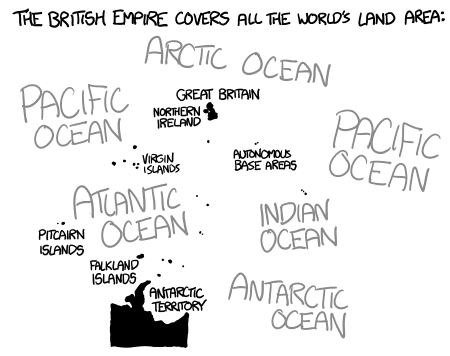 THE BRITISH EMPIRE COVERS ALL THE WORLD'S LAND AREA:
ARCTIC OCEAN
PACIFIC
OCEAN
GREAT BRITAIN
NORTHERN
IRELAND
PACIFIC
OCEAN
VIRGIN
ISLANDS
AUTONOMOUS
BASE AREAS
ATLANTIC
OCEAN
INDIAN
OCEAN
PITCAIRN
ISLANDS
FALKLAND
ISLANDS
ANTARCTIC
TERRITORY
ANTARCTIC
OCEAN